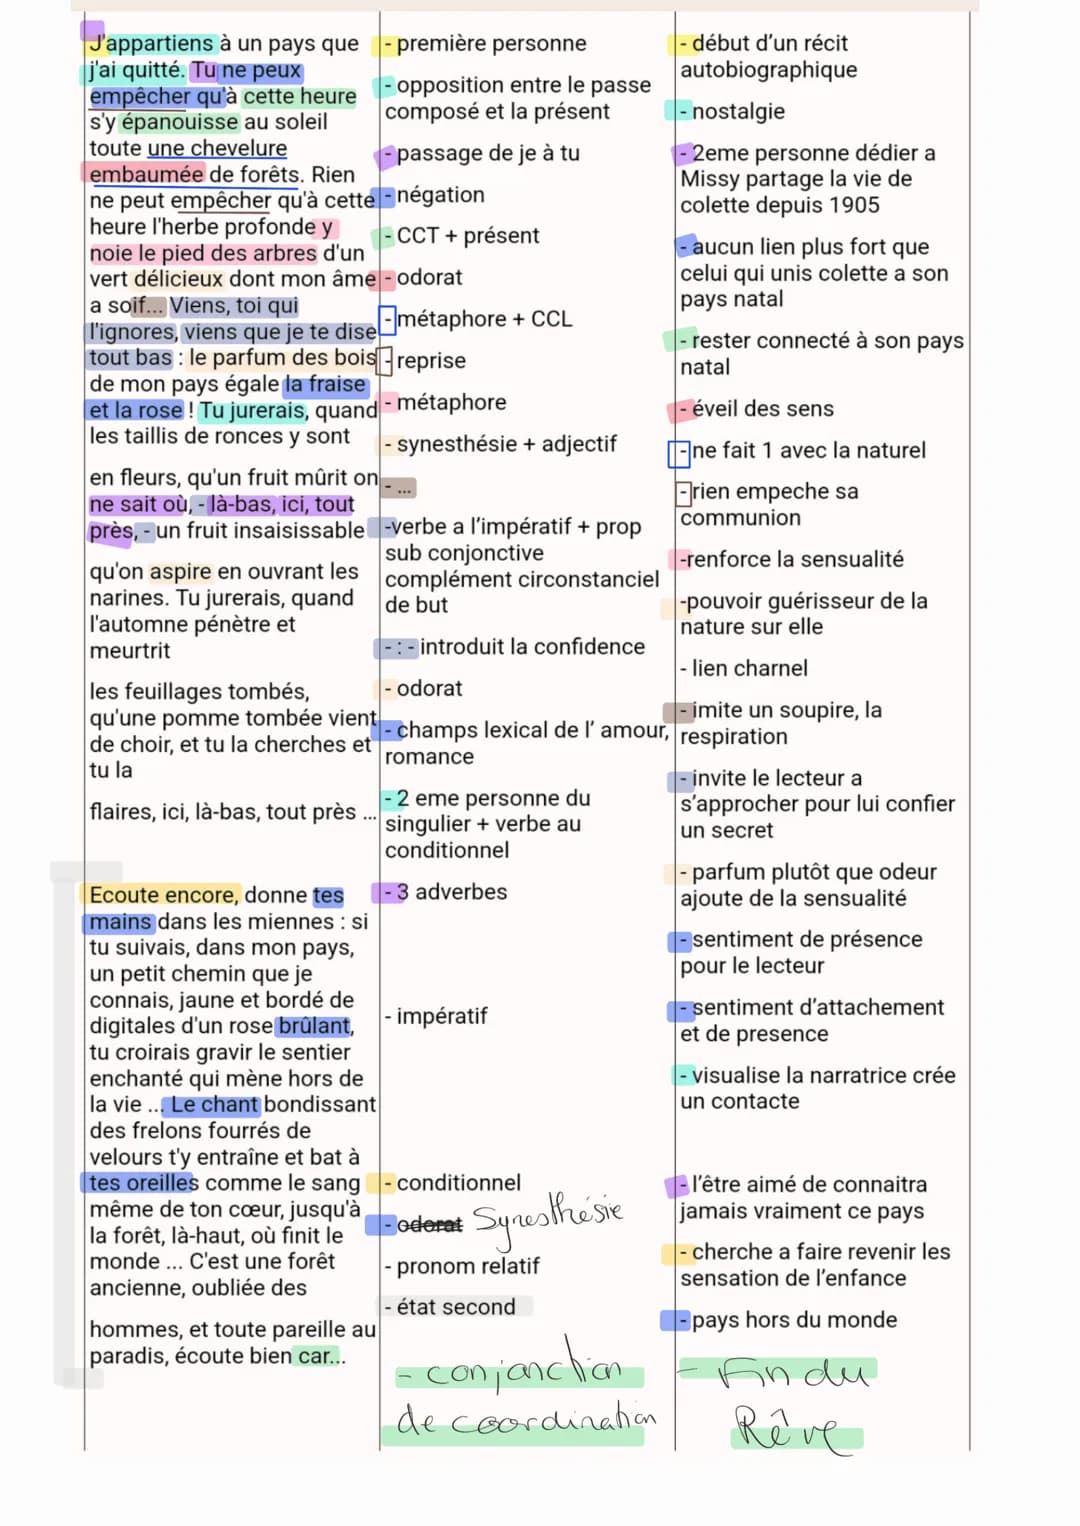 J'appartiens à un pays que
j'ai quitté. Tu ne peux
empêcher qu'à cette heure
s'y épanouisse au soleil
toute une chevelure
embaumée de forêts. Rien
ne peut empêcher qu'à cette
heure l'herbe profonde y
noie le pied des arbres d'un
vert délicieux dont mon âme
a soif... Viens, toi qui
l'ignores, viens que je te dise
tout bas : le parfum des bois
de mon pays égale la fraise
et la rose ! Tu jurerais, quand
les taillis de ronces y sont
en fleurs, qu'un fruit mûrit on
ne sait où, - là-bas, ici, tout
près, - un fruit insaisissable
qu'on aspire en ouvrant les
narines. Tu jurerais, quand
l'automne pénètre et
meurtrit
les feuillages tombés,
qu'une pomme tombée vient
de choir, et tu la cherches et
tu la
flaires, ici, là-bas, tout près ...
Ecoute encore, donne tes
mains dans les miennes : si
tu suivais, dans mon pays,
un petit chemin que je
connais, jaune et bordé de
digitales d'un rose brûlant,
tu croirais gravir le sentier
enchanté qui mène hors de
la vie ... Le chant bondissant
des frelons fourrés de
velours t'y entraîne et bat à
tes oreilles comme le sang
même de ton cœur, jusqu'à
la forêt, là-haut, où finit le
monde ... C'est une forêt
ancienne, oubliée des
hommes, et toute pareille au
paradis, écoute bien car...
- première personne
- opposition entre le passe
composé et la présent
- passage de je à tu
- négation
- CCT + présent
- odorat
- métaphore + CCL
- reprise
- métaphore
- synesthésie + adjectif
- ...
-verbe a l'impératif + prop
sub conjonctive
complément circonstanciel
de but
- : - introduit la confidence
- odorat
- champs lexical de l' amour,
romance
- 2 eme personne du
singulier + verbe au
conditionnel
- 3 adverbes
- impératif
- conditionnel
- odorat Synesthésie
- pronom relatif
- état second
- conjonction
de coordination
- début d'un récit
autobiographique
- nostalgie
- 2eme personne dédier a
Missy partage la vie de
colette depuis 1905
- aucun lien plus fort que
celui qui unis colette a son
pays natal
- rester connecté à son pays
natal
- éveil des sens
- ne fait 1 avec la naturel
- rien empeche sa
communion
-renforce la sensualité
-pouvoir guérisseur de la
nature sur elle
- lien charnel
- imite un soupire, la
respiration
- invite le lecteur a
s'approcher pour lui confier
un secret
- parfum plutôt que odeur
ajoute de la sensualité
- sentiment de présence
pour le lecteur
- sentiment d'attachement
et de presence
- visualise la narratrice crée
un contacte
- l'être aimé de connaitra
jamais vraiment ce pays
- cherche a faire revenir les
sensation de l'enfance
- pays hors du monde
- Fin du
Rêve